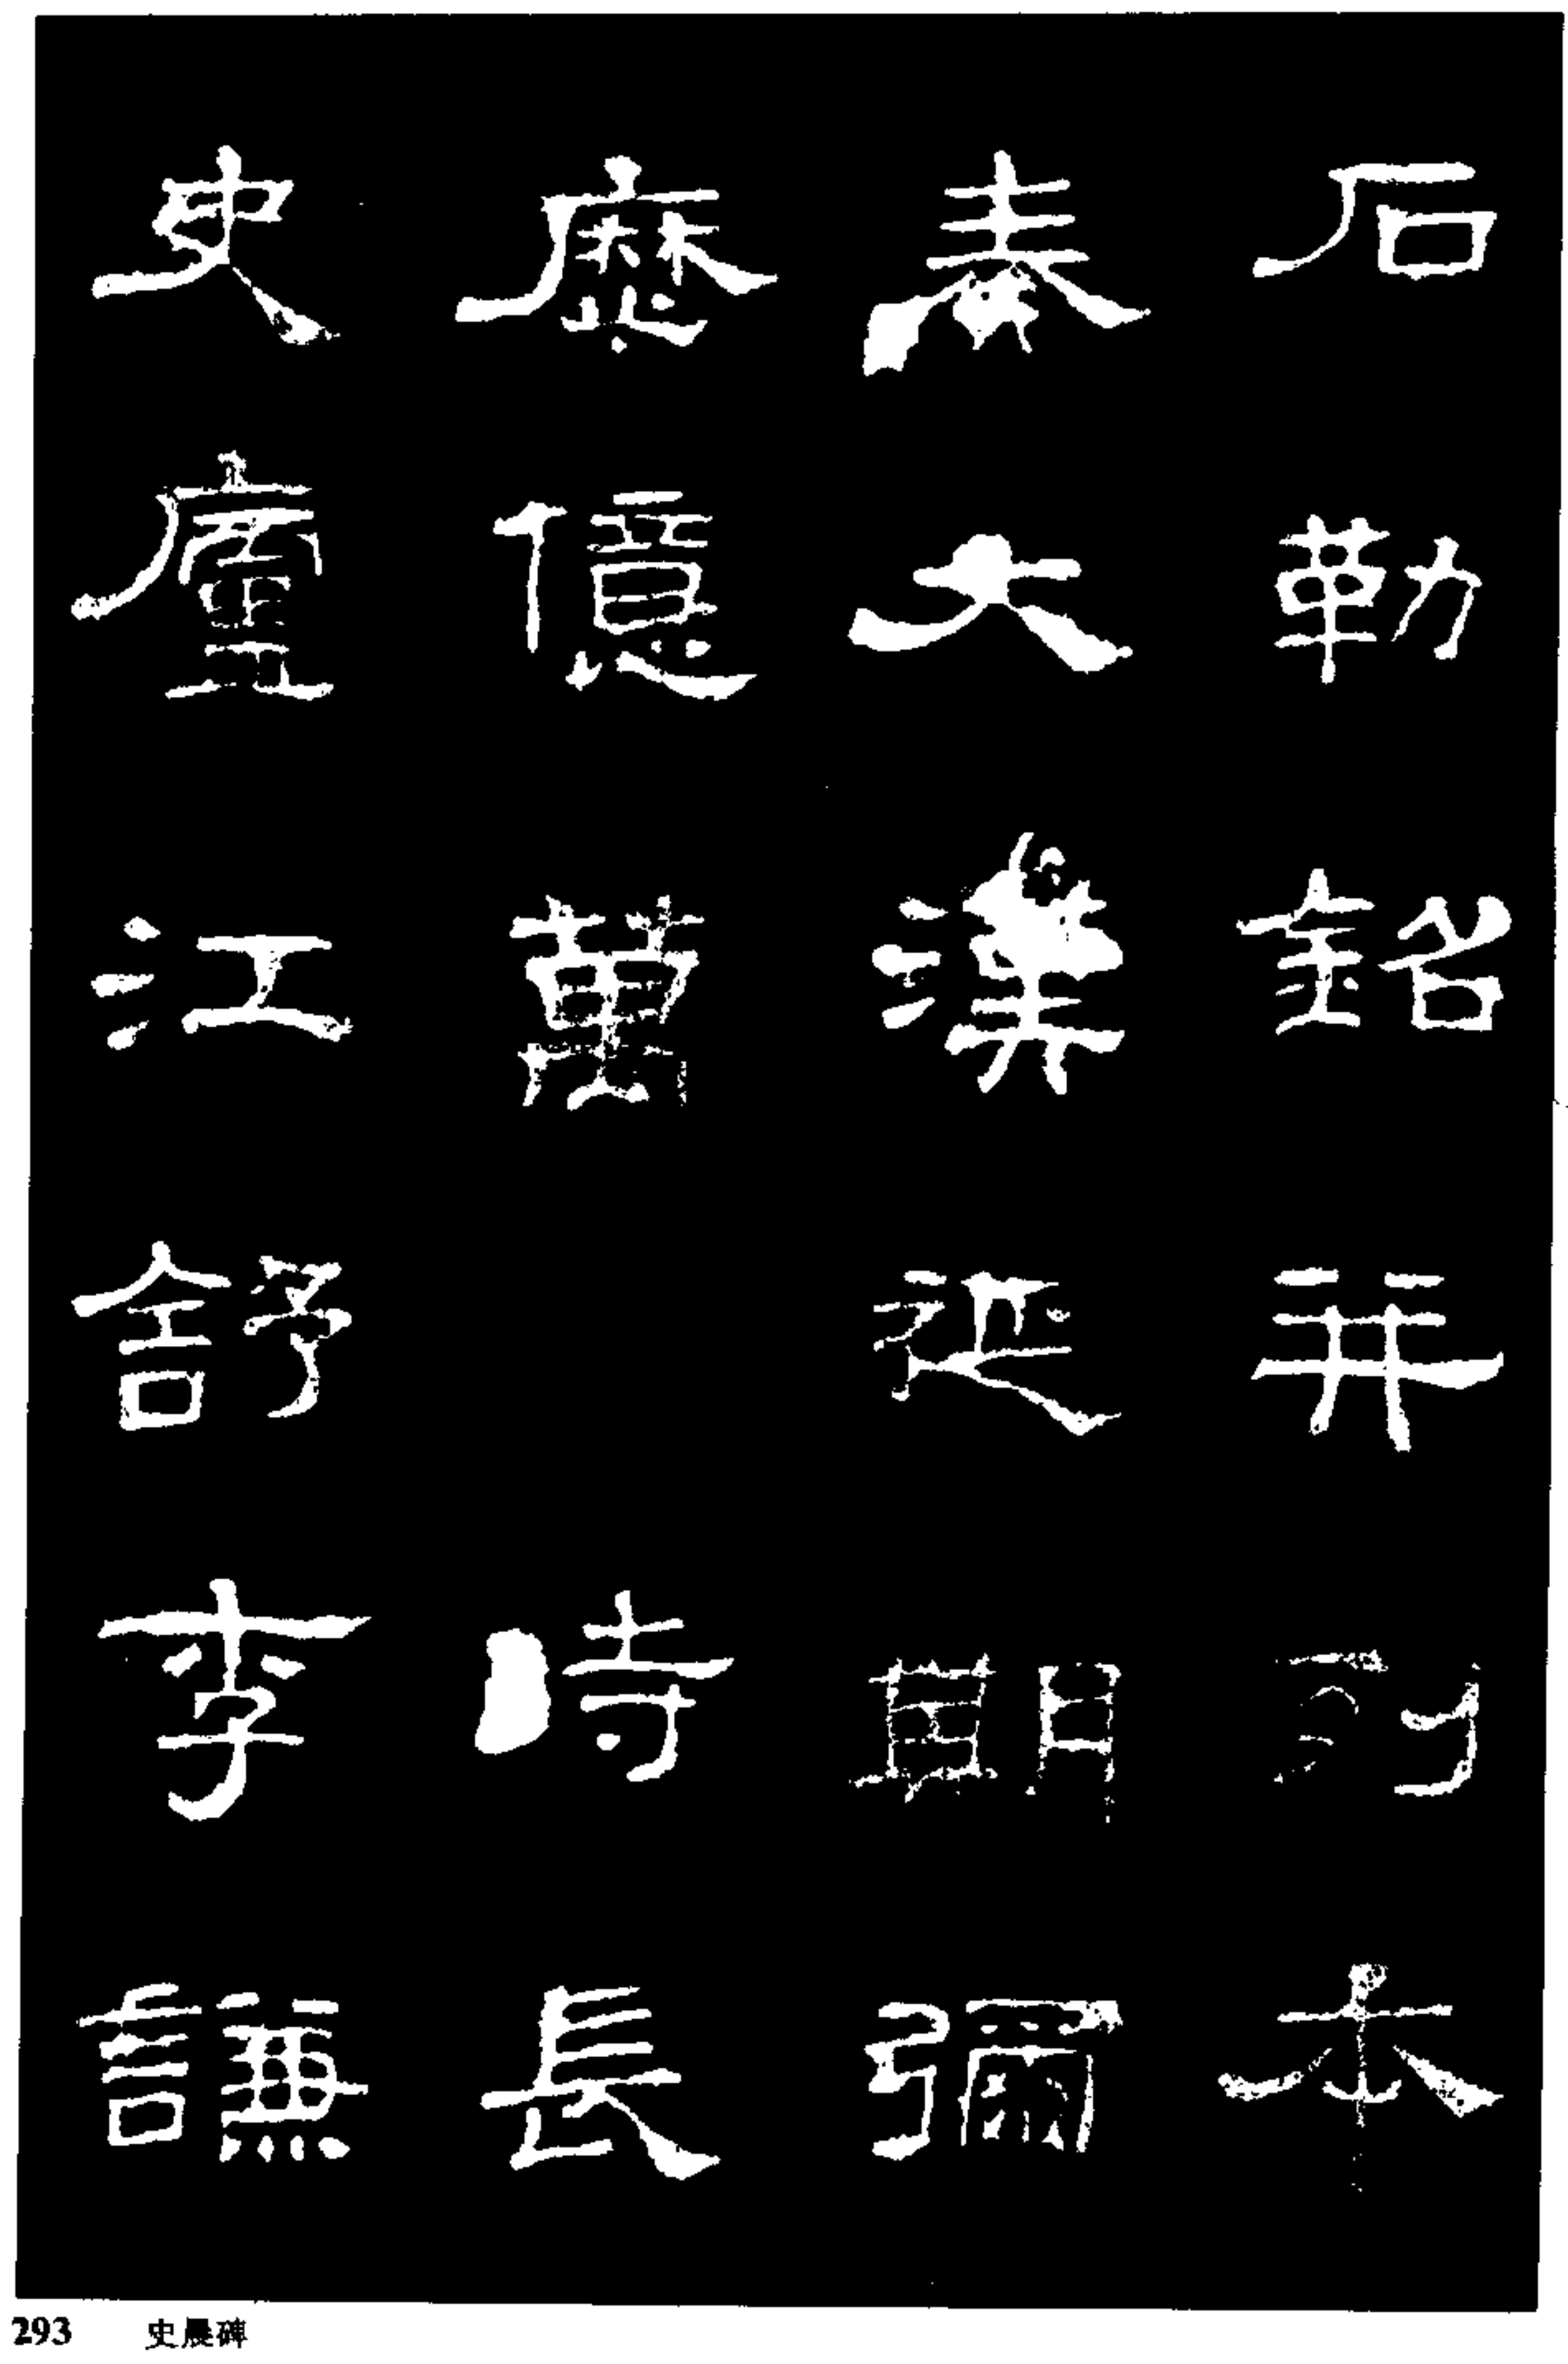 石勒銘并列本
奏大漢延期彌
歷億萬 時長
史廬江舒李謙
293 史晨碑